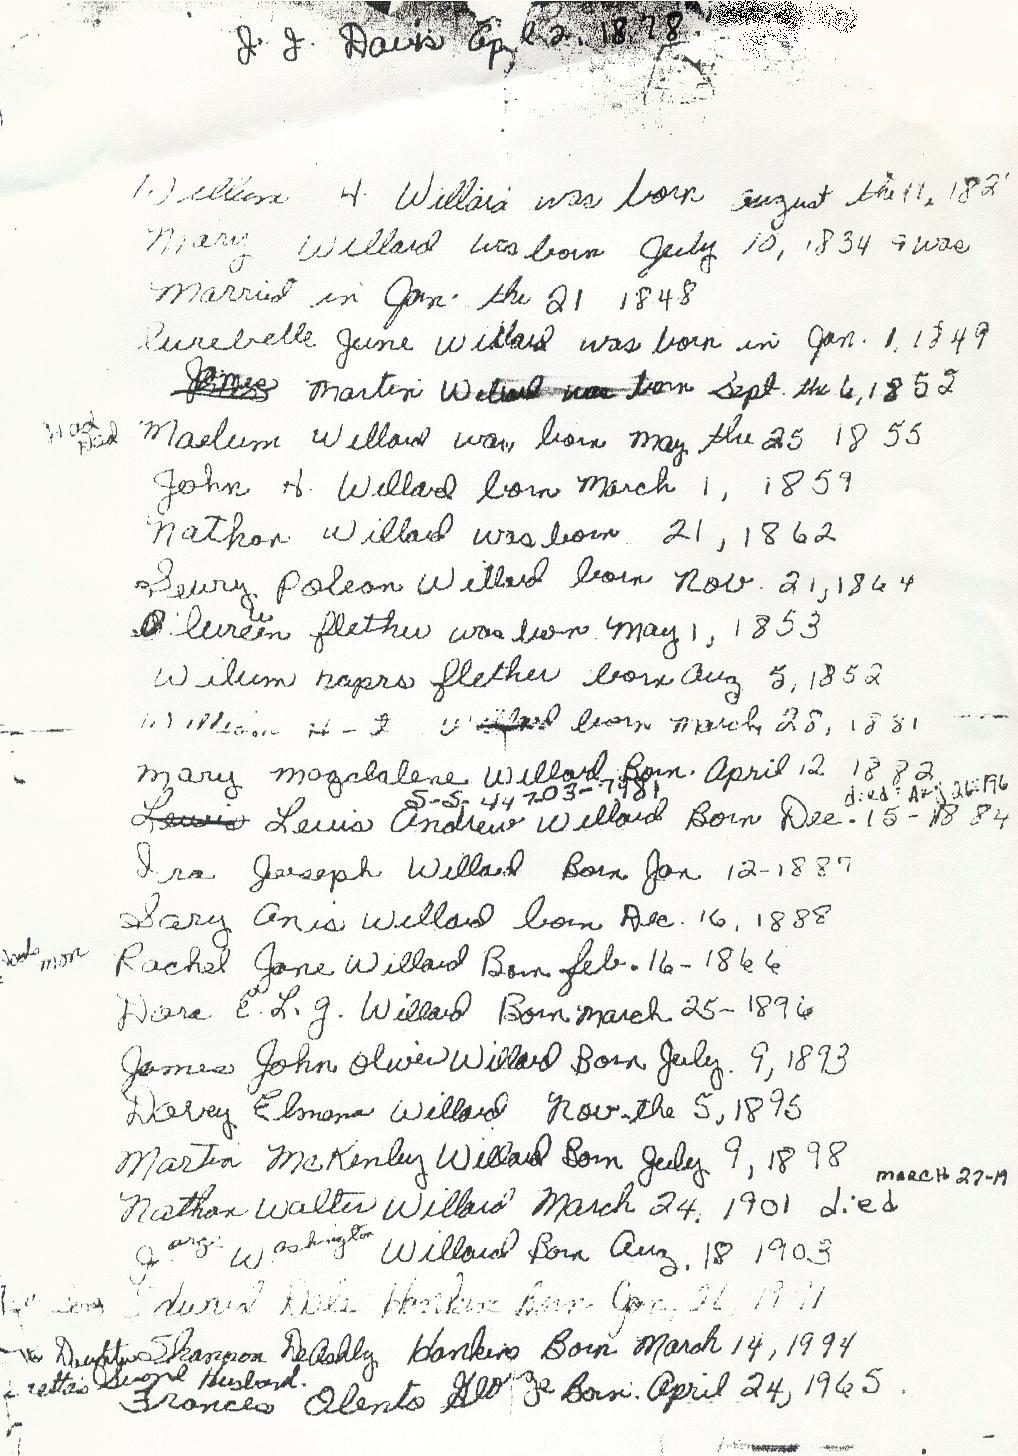 J. J. Davis 2, 1878
William H. Willard was born august the 11, 182
Mary Willard was born July 10, 1834 & was
Married in Jan. the 21 1848
June Willard was born in Jan. 1, 1849
James Martin Willard was born Sept. the 6, 1852
Maelum Willard was born may the 25 1855
John H. Willard born March 1, 1859
Nathan Willard was born 21, 1862
Poleon Willard born Nov. 21, 1864
flether was born May 1, 1853
Wilum flether born Aug 5, 1852
William H - Willard born march 28, 1881
mary magdalene Willard Born. April 12 1882
S-S. 44703-7981 died Aug 26-196
Lewis Lewis Andrew Willard Born Dec. 15-1884
Ira Joseph Willard Born Jan 12-1887
Sary Anis Willard born Dec. 16, 1888
mom Rachel Jane Willard Born feb. 16-1866
Dora E. L. g. Willard Born march 25-1896
James John oliver Willard Born July. 9, 1893
Dovey Elmena Willard Nov. the 5, 1895
Martin McKinley Willard Born July 9, 1898
MARCH 27-19
Nathan Walter Willard March 24, 1901 died
Washington Willard Born Aug. 18 1903
Dale Hankins Born Jan. 26,
Daughter Shannon DeAshly Hankins Born March 14, 1994
Second Husband.
Frances Olento Born. April 24, 1965.